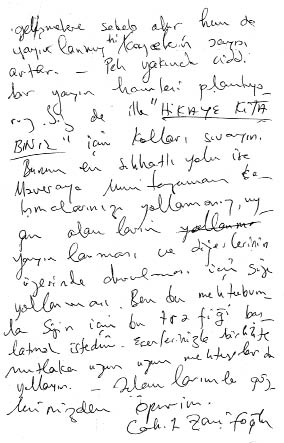 gelişmelere sebeb olur hem de
yayınlanmış kaynağın sayısı
artar. — Pek yakında ciddi
bir yayın hamlesi planlıyo
ruz. Siz de ilk "HİKAYE KİTA
BINIZ" için kolları sıvayın.
Bunun en sıhhatli yolu ise
Maveraya muntazaman ça
lışmalarınızı yollamanız, uy
gun olanların yollanma
yayınlanması ve diğerlerinin
üzerinde durulması için size
yollanması. Ben bu mektubum
la sizin için bu trafiği baş
latmak istedim. Eserlerinizle birlikte
mutlaka uzun uzun mektuplar da
yollayın. — Selamlarımla göz
lerinizden öperim.
Cahit Zarifoğlu